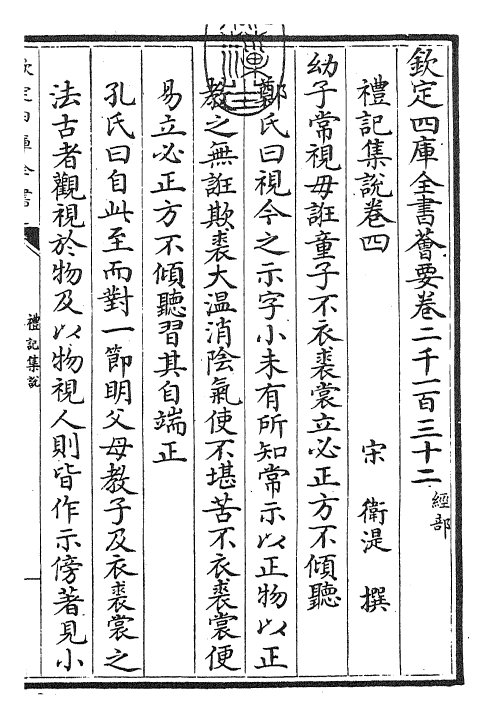 欽定四庫全書薈要卷二千一百三十二經部
禮記集說卷四
宋 衛湜 撰
幼子常視毋誑童子不衣裘裳立必正方不傾聽
鄭氏曰視今之示字小未有所知常示以正物以正
教之無誑欺裘大温消陰氣使不堪苦不衣裘裳便
易立必正方不傾聽習其自端正
孔氏曰自此至而對一節明父母教子及衣裘裳之
法古者觀視於物及以物視人則皆作示傍著見小
欽定四庫全書
禮記集說